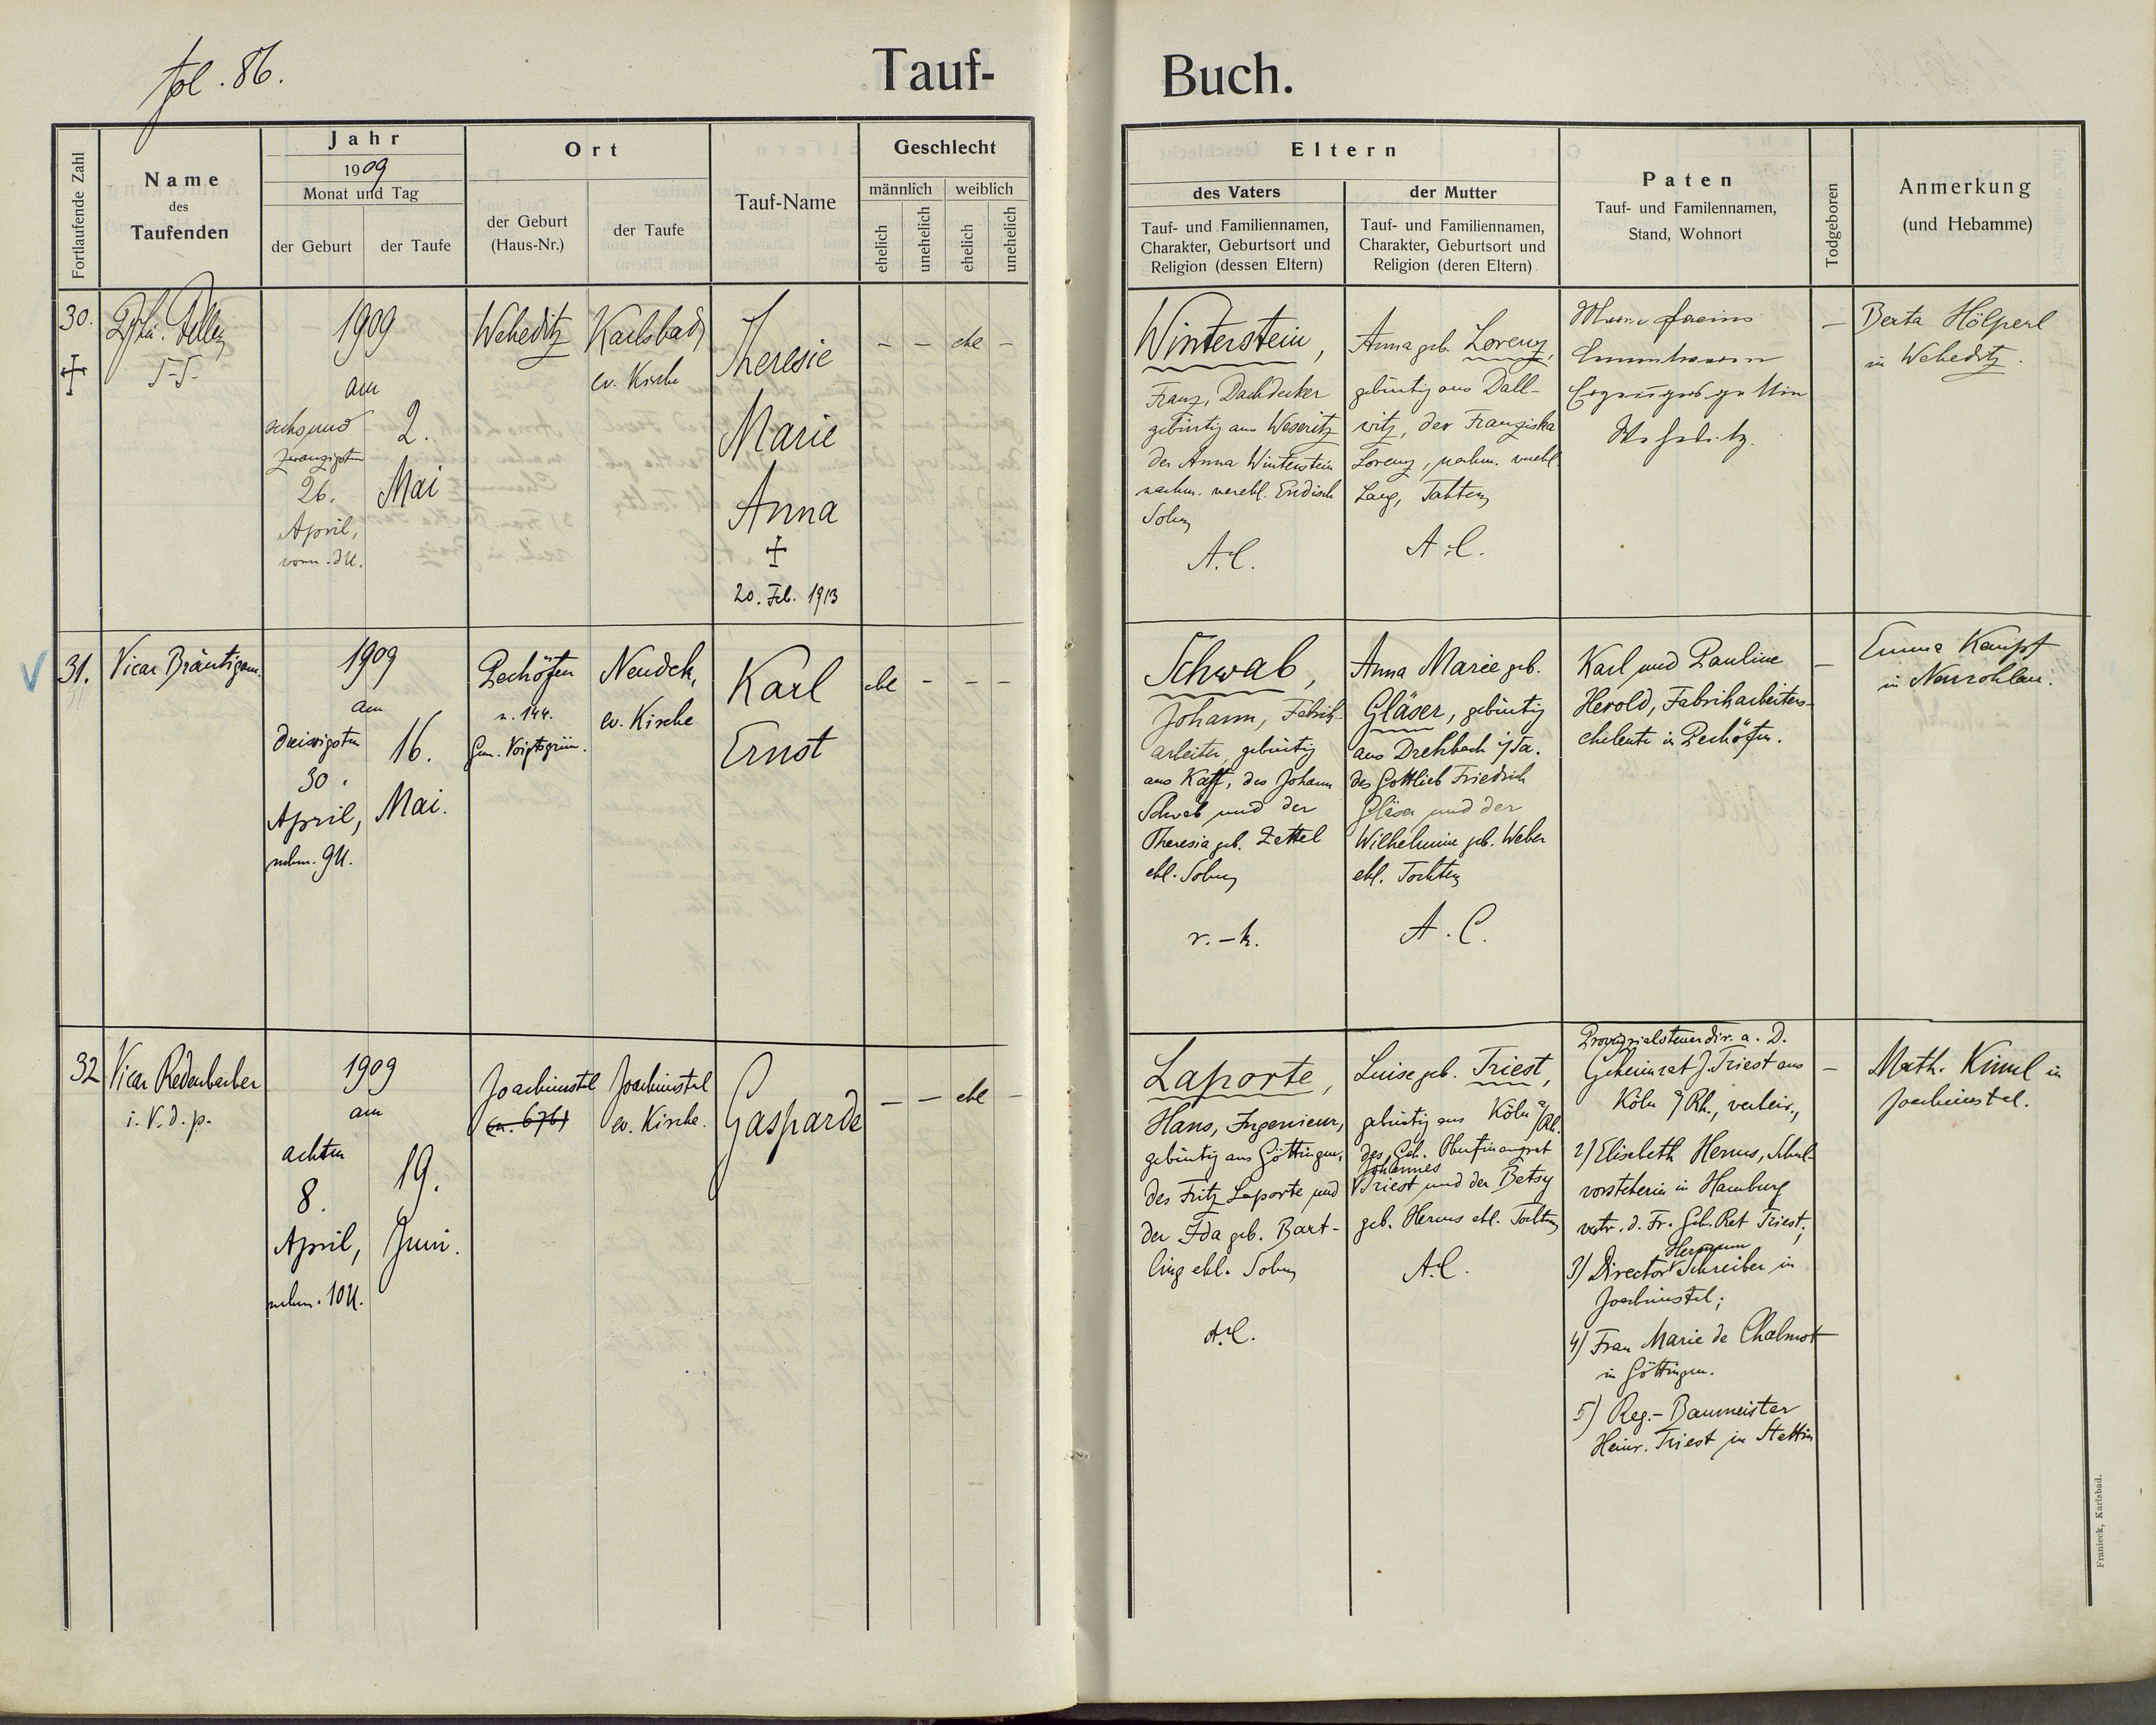 fol. 86.
Tauf-
Buch.
Fortlaufende Zahl
Name
des
Taufenden
Jahr
1909
Monat und Tag
der Geburt
der Taufe
Ort
der Geburt
(Haus-Nr.)
der Taufe
Tauf-Name
Geschlecht
männlich
weiblich
ehelich
unehelich
ehelich
unehelich
Eltern
des Vaters
Tauf- und Familiennamen,
Charakter, Geburtsort und
Religion (dessen Eltern)
der Mutter
Tauf- und Familiennamen,
Charakter, Geburtsort und
Religion (deren Eltern)
Paten
Tauf- und Familennamen,
Stand, Wohnort
Todgeboren
Anmerkung
(und Hebamme)
30.
1909
am
sechsund
zwanzigsten
26.
April,
vorm. 3U.
2.
Mai
Weheditz
Karlsbad,
ev. Kirche
Theresie
Marie
Anna
20. Feb. 1913
– – ehe –
Winterstein,
Franz, Dachdecker
gebürtig aus Weseritz
der Anna Winterstein
nachm. verehl. Endisch
Sohn
A.C.
Anna geb. Lorenz,
gebürtig aus Dall-
witz, der Franziska
Lorenz, nachm. verehl.
Lang, Tochter
A.C.
–
Berta Hölperl
in Weheditz.
31.
Vicar Bräutigam.
1909
am
dreissigsten
30.
April,
nachm. 9U.
16.
Mai.
Pechöfen
n. 144.
Gem. Voigtsgrün.
Neudek,
ev. Kirche
Karl
Ernst
ehl – – –
Schwab,
Johann, Fabrik-
arbeiter, gebürtig
aus Kaff, des Johann
Schwab und der
Theresia geb. Zettel
ehl. Sohn
r.-k.
Anna Marie geb.
Gläser, gebürtig
aus Drehbach i/Sa.
des Gottlieb Friedrich
Gläser und der
Wilhelmine geb. Weber
ehl. Tochter
A.C.
Karl und Pauline
Herold, Fabrikarbeiters-
eheleute in Pechöfen.
–
Emma Kempf
in Neurohlau.
32
Vicar Redenbacher
i. V. d. p.
1909
am
achten
8.
April,
nachm. 10U.
19.
Juni.
Joachimstal
(n. 676)
Joachimstal
ev. Kirche.
Gasparde
– – ehl –
Laporte,
Hans, Ingenieur,
gebürtig aus Göttingen,
des Fritz Laporte und
der Ida geb. Bart-
ling ehl. Sohn
A.C.
Luise geb. Triest,
gebürtig aus Köln a/Rh.
des Geh. Oberfinanzrat
Johannes
Triest und der Betsy
geb. Herms ehl. Tochter
A.C.
Provinzialsteuerdir. a. D.
Geheimrat J. Triest aus
Köln a/Rh.,
2) Elisabeth Herms, Schul-
vorsteherin in Hamburg
vertr. d. Fr. Geh. Rat Triest;
Hermann
3) Director Schreiber in
Joachimstal;
4) Frau Marie de Chalmot
in Göttingen.
5) Reg.-Baumeister
Heinr. Triest in Stettin
–
Math. Kimml in
Joachimstal.
Franieck, Karlsbad.